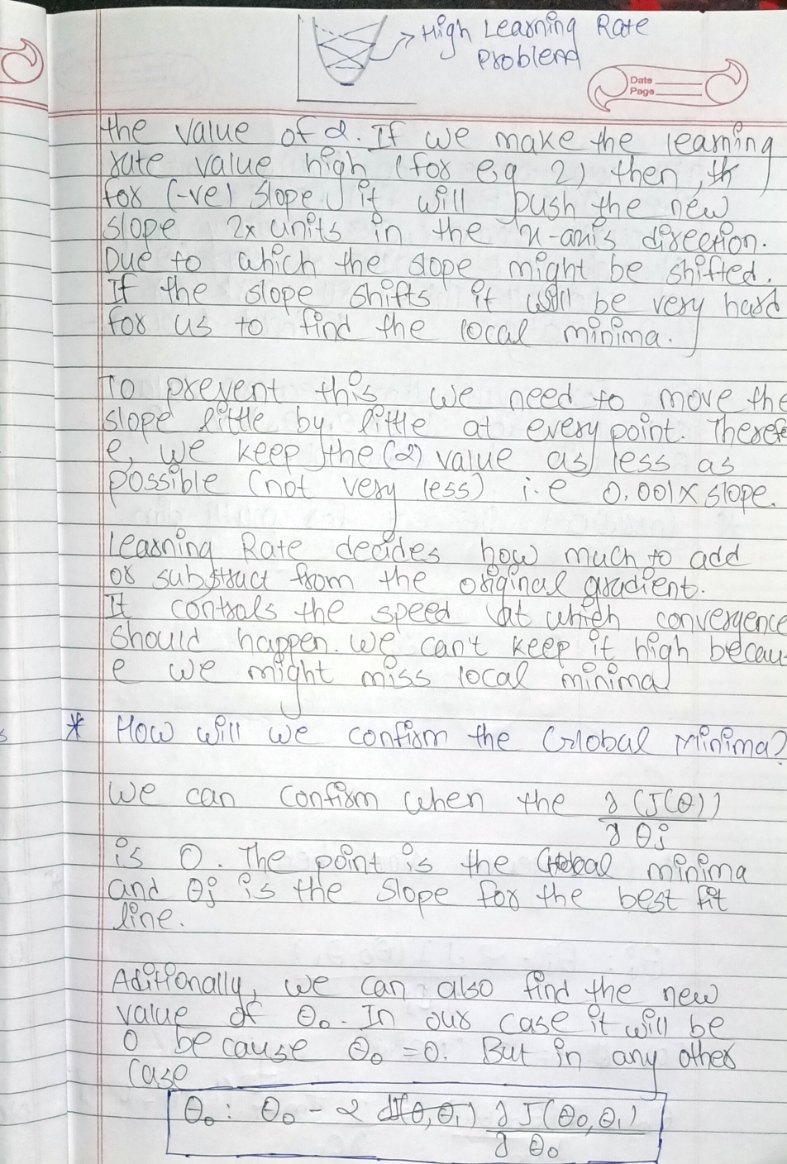 High Learning Rate
Problem
Date
Page
the value of α. If we make the learning
rate value high (for e.g 2) then,
for (-ve) slope, it will push the new
slope 2x units in the x-axis direction.
Due to which the slope might be shifted.
If the slope shifts it will be very hard
for us to find the local minima.
To prevent this we need to move the
slope little by little at every point. Therefor
e, we keep the (α) value as less as
possible (not very less) i.e 0.001 x slope.
Learning Rate decides how much to add
or substract from the original gradient.
It controls the speed at which convergence
should happen. We can't keep it high becaus
e we might miss local minima
* How will we confirm the Global Minima?
We can confirm when the ∂(J(θ))
∂θj
is 0. The point is the Global minima
and θj is the slope for the best fit
line.
Aditionally, we can also find the new
value of θ₀. In our case it will be
0 because θ₀ = 0. But in any other
case
θ₀ : θ₀ - α ∂J(θ₀,θ₁)
∂θ₀